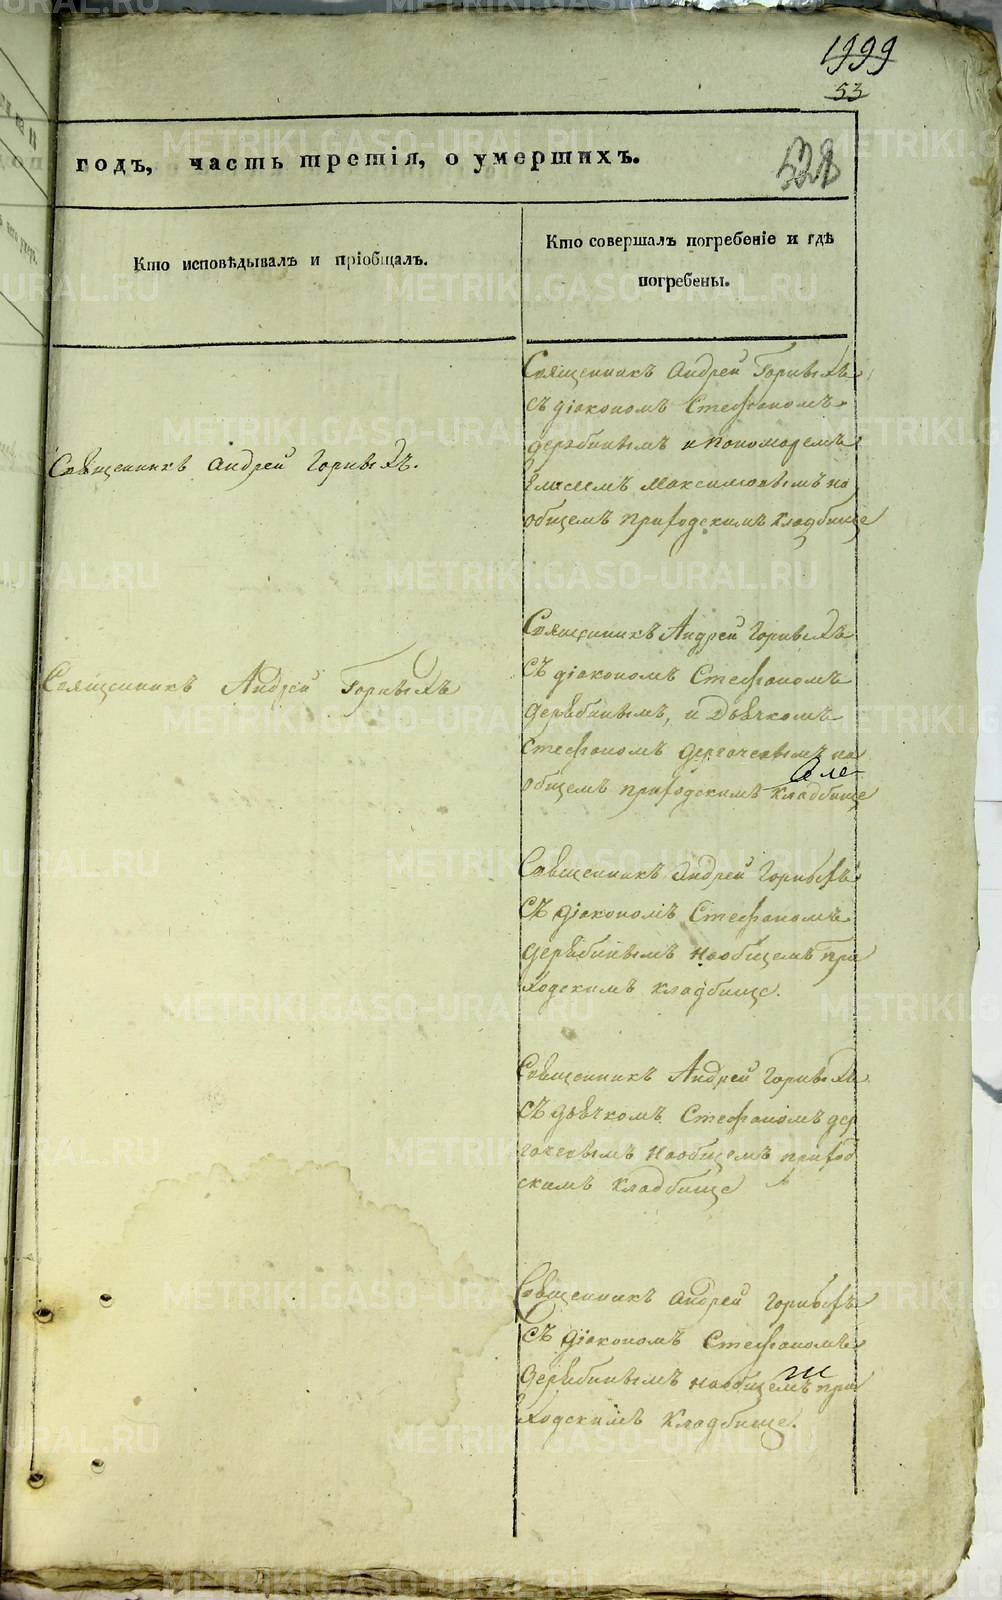 1999
53
528
годъ, часть третія, о умершихъ.
Кто исповѣдывалъ и пріобщалъ.
Кто совершалъ погребеніе и гдѣ
погребены.
Священникъ Андрей Горныхъ
съ діакономъ Стефаномъ
Дерябинымъ и пономоремъ
Елисеемъ Максимовымъ на
общемъ приходскимъ кладбище
Священникъ Андрей Горныхъ.
Священникъ Андрей Горныхъ
съ діакономъ Стефаномъ
Дерябинымъ, и Дьячкомъ
Стефаномъ Дергачевымъ на
общемъ приходскимъ кладбище
Священникъ Андрей Горныхъ
Священникъ Андрей Горныхъ
съ діакономъ Стефаномъ
Дерябинымъ на общемъ при
ходскимъ кладбище.
Священникъ Андрей Горныхъ
съ дьячкомъ Стефаномъ Дер
гачевымъ на общемъ приход
скимъ кладбище
Священникъ Андрей Горныхъ
съ діакономъ Стефаномъ
Дерябинымъ на общемъ при
ходскимъ кладбище.
METRIKI.GASO-URAL.RU